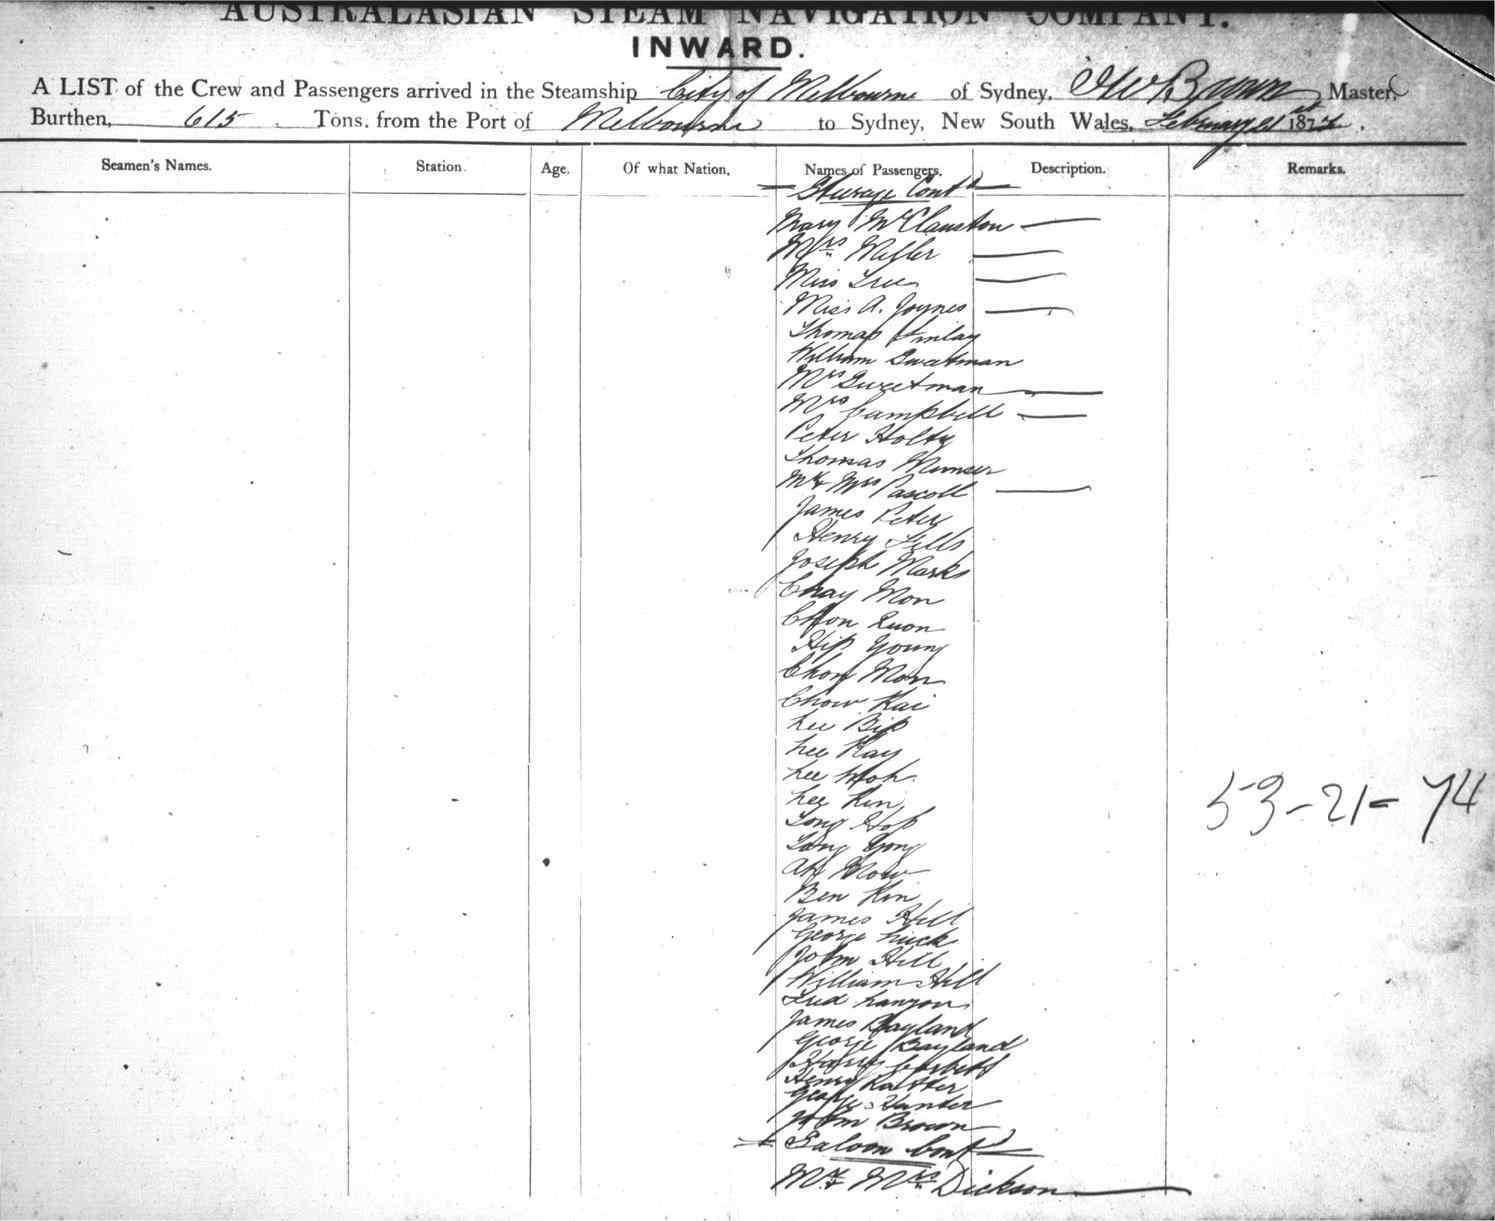 AUSTRALASIAN STEAM NAVIGATION COMPANY.
INWARD.
A LIST of the Crew and Passengers arrived in the Steamship City of Melbourne of Sydney, Brown Master,
Burthen, 615 Tons, from the Port of Melbourne to Sydney, New South Wales, February 21st 1874.
Seamen's Names. Station. Age. Of what Nation, Names of Passengers. Description. Remarks.
Steerage Contd
Mary McClauston
Mrs Miller
Miss
Miss A. Joynes
Thomas Finlay
William Sweetman
Mrs Sweetman
Mrs Campbell
Peter Holty
Thomas
Mr & Mrs Pascoll
James Peter
Henry Fells
Joseph Marks
Chay Mon
Chon Quon
Hip Young
Chon Mon
Chow Kai
Lee Bip
Lee Kay
Lee Hoh
Lee Kin
Long Hop
Long Yong
Ah Mow
Ben Kin
James Hill
George Luck
John Hill
William Hill
James Bayland
George Bayland
Harry Corbett
Henry
George Hunter
John Brown
Saloon Contd
Mr & Mrs Dickson
53-21-74